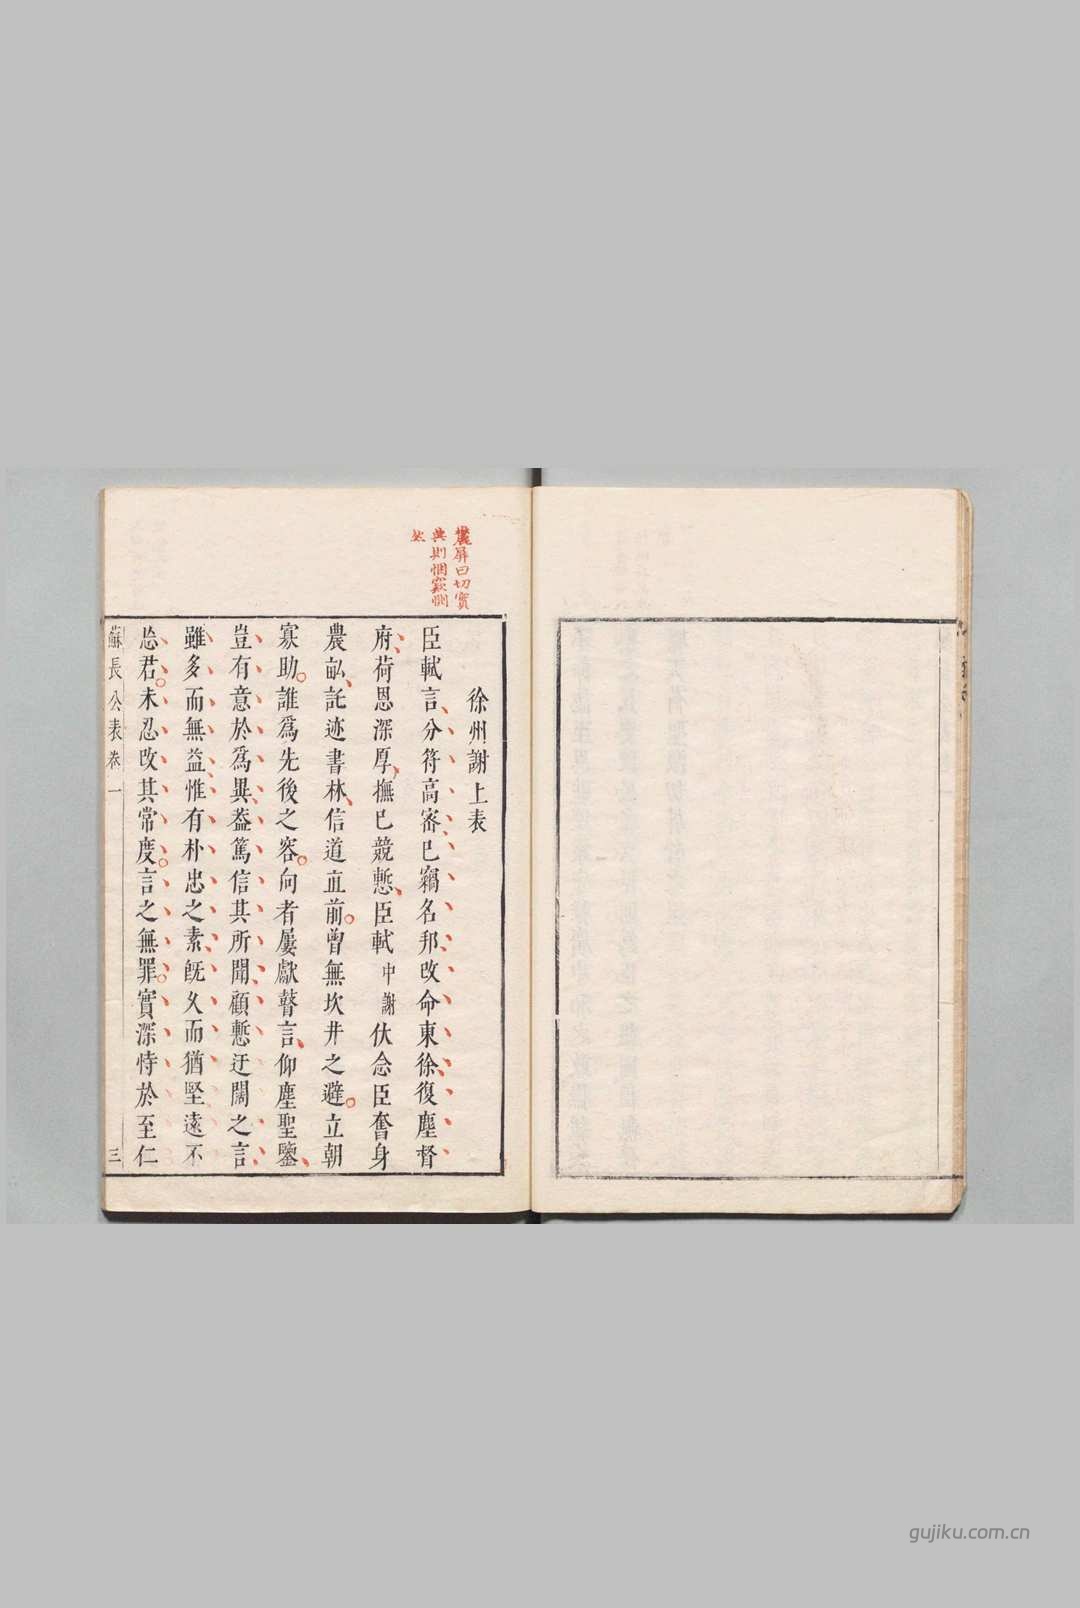 麓屏曰切實
典則悃款惻
然
徐州謝上表
臣軾言分符高宻已竊名邦改命東徐復塵督
府荷恩深厚撫已競慙臣軾中謝伏念臣奮身
農畝託迹書林信道直前曾無坎井之避立朝
寡助誰爲先後之容向者屢獻瞽言仰塵聖鑒
豈有意於爲異葢篤信其所聞顧慙迂闊之言
雖多而無益惟有朴忠之素旣久而猶堅遠不
忘君未忍改其常度言之無罪實深恃於至仁
蘇長公表卷一
三
gujiku.com.cn